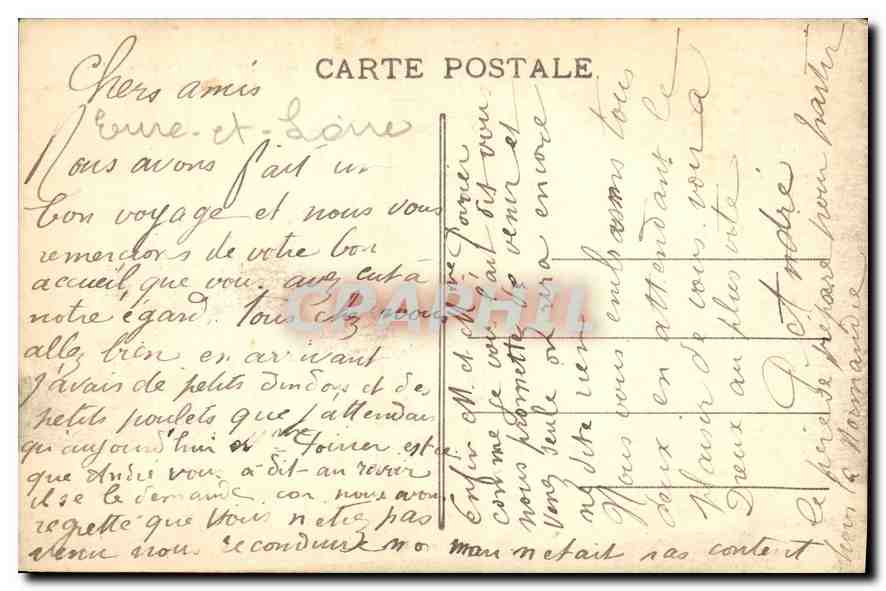 CARTE POSTALE
Chers amis
Eure-et-Loire
Nous avons fait un
bon voyage et nous vous
remercions de votre bon
accueil que vous avez eut à
notre égard. Tous chez nous
allez bien en arrivant
j'avais de petits dindons et des
petits poulets que j'attendais
qu'aujourd'hui Mme Poirier est ce
que André vous à dit au revoir
il se le demande car nous avons
regretté que vous n'etiez pas
venu nous reconduire mon mari n'était pas content
Enfin M. et Mme Poirier
comme je vous l'ait dit vous
nous promettez de venir et
venez seule on sera encore
ne dite rien
Nous vous embrassons tous
deux en attendant le
plaisir de vous voir a
Dreux au plus vite
P André
le père se prépare pour partir
la Normandie
CPAPHIL